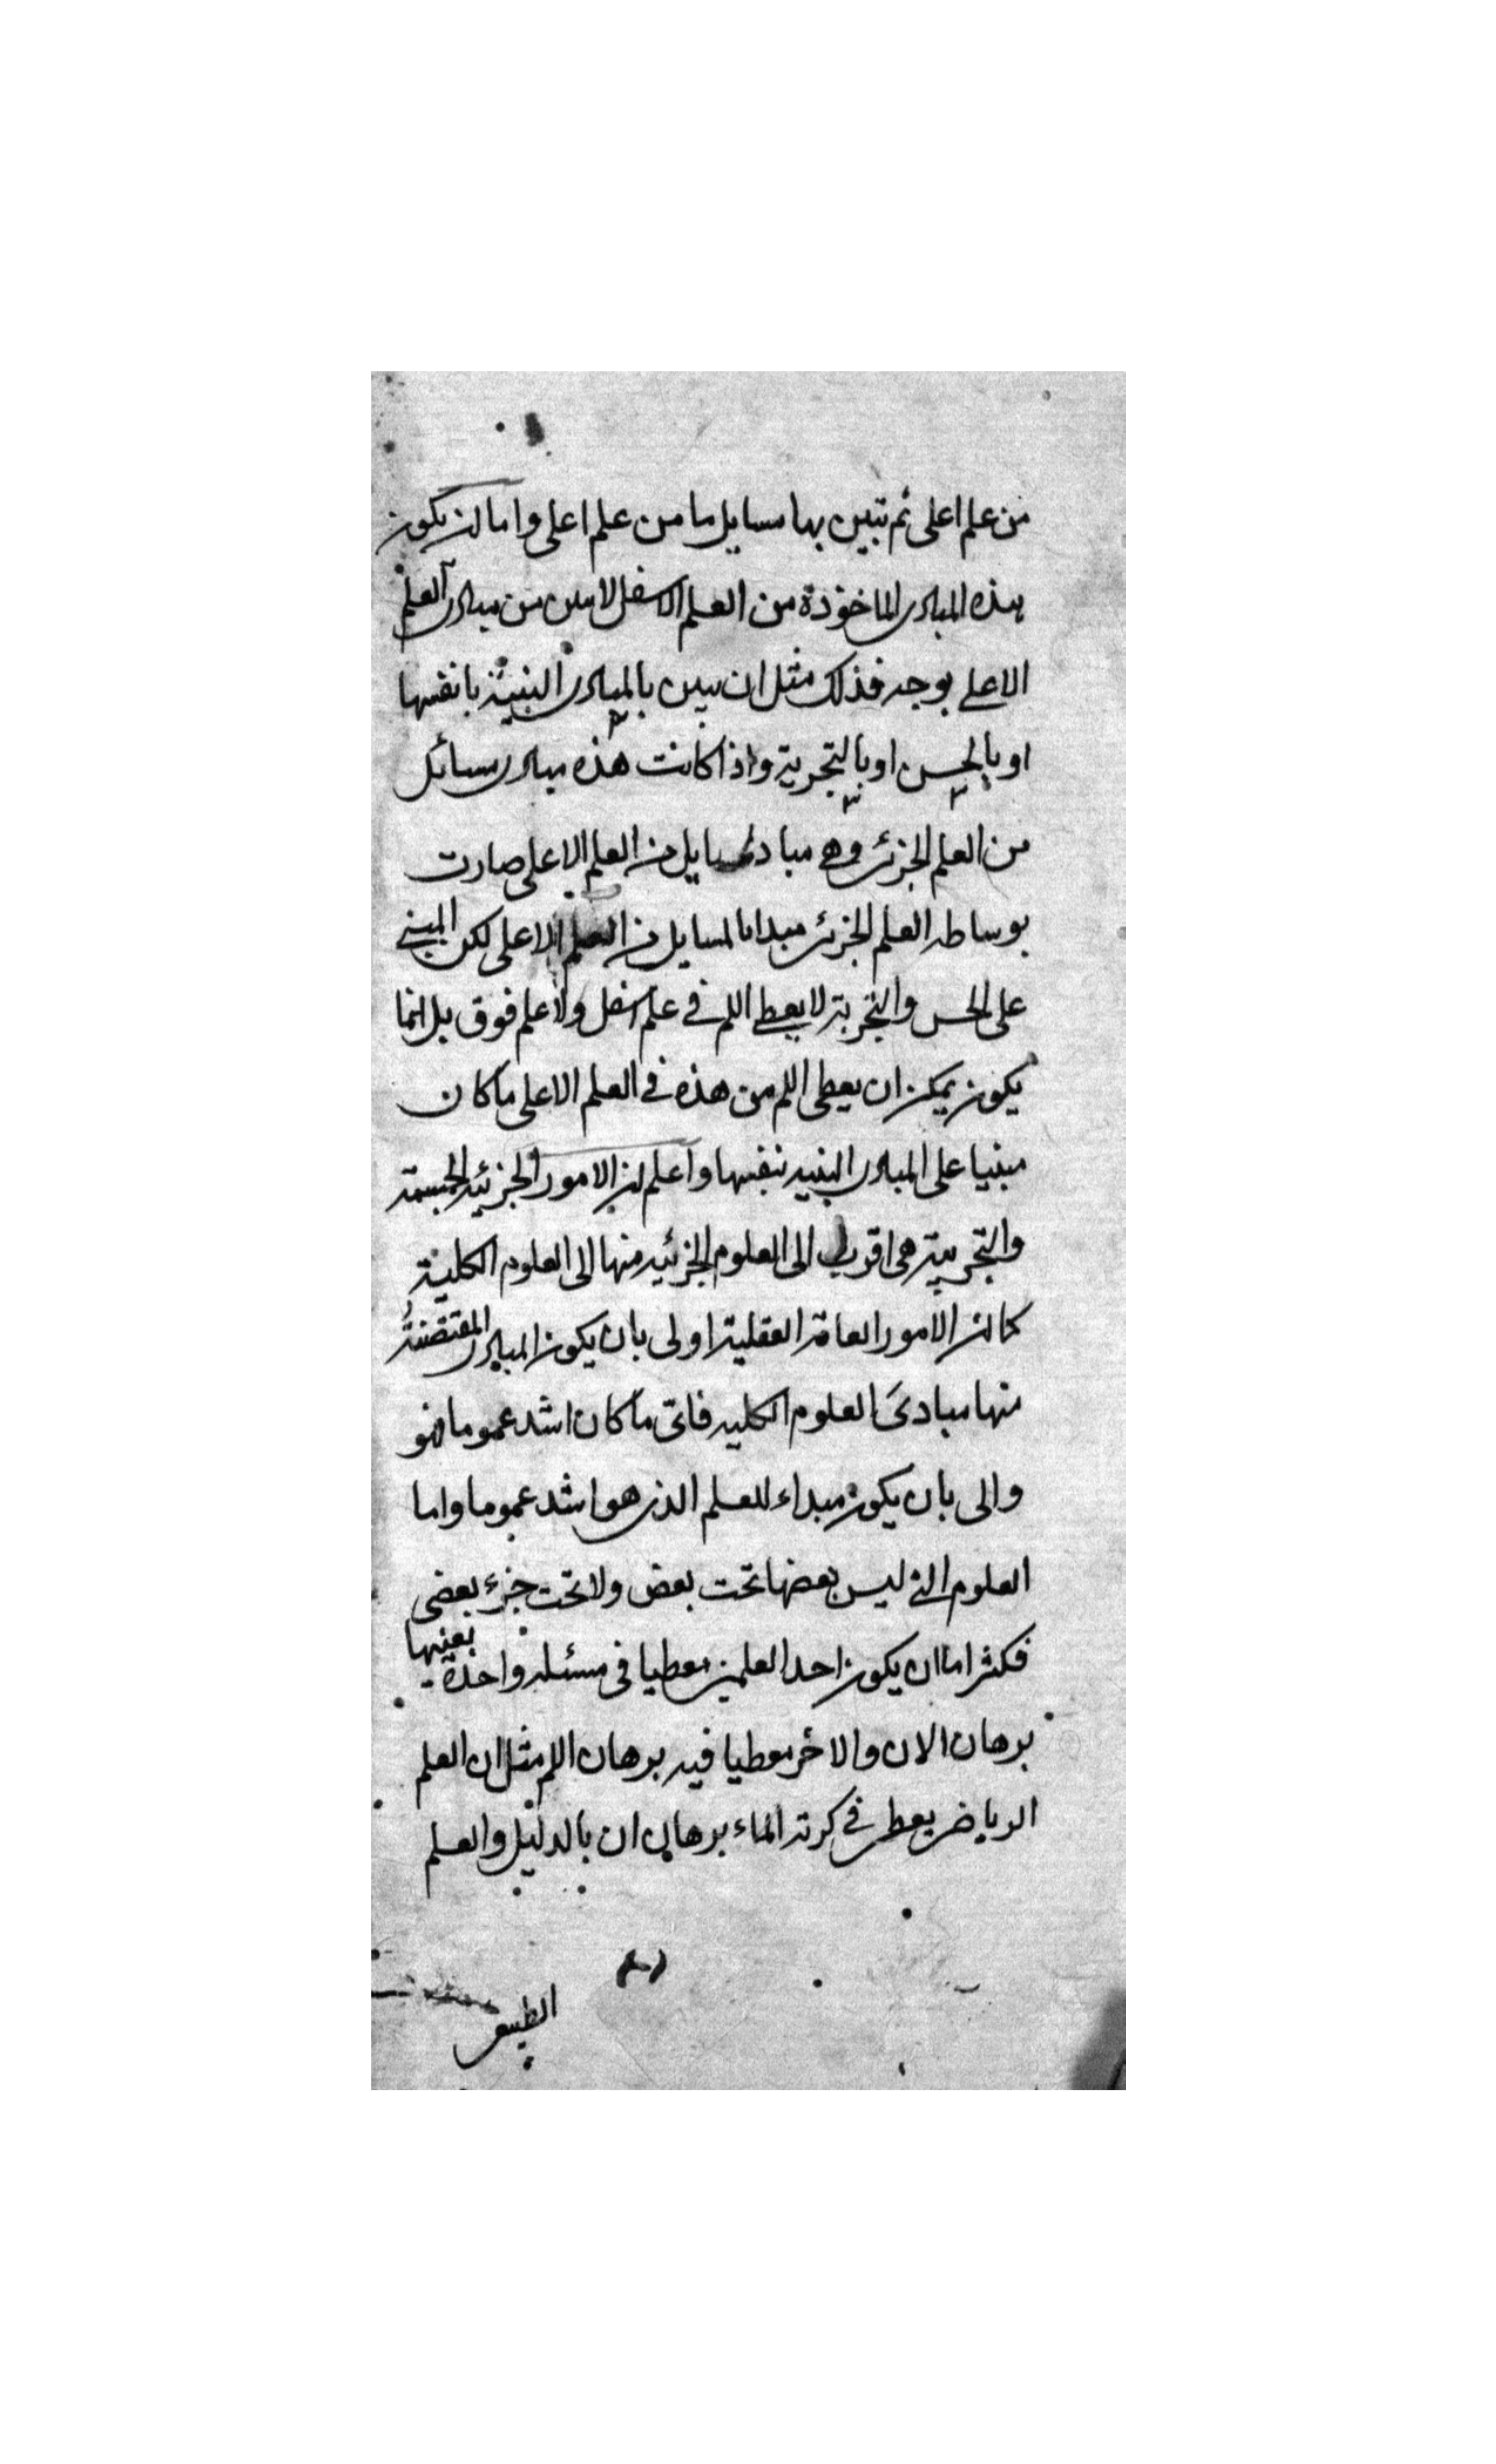 من علم اعلى ثم تبين بها مسايل ما من علم اعلى واما ان يكون
هذه المبادى الماخوذة من العلم الاسفل لا تبين من مبادى العلم
الاعلى بوجه فذلك مثل ان تبين بالمبادى البينة بانفسها
او بالحس او بالتجربة واذا كانت هذه مبادى مسائل
من العلم الجزئى وهى مبادى مسايل من العلم الاعلى صارت
بوساطه العلم الجزئى مبدا لمسايل من العلم الاعلى لكن المبنى
على الحس والتجربة لا يعطى اللم فى علم اسفل ولا علم فوق بل انما
يكون يمكن ان يعطى اللم من هذه فى العلم الاعلى ما كان
مبنيا على المبادى البينه بنفسها واعلم ان الامور الجزئيه
والتجربية هى اقرب الى العلوم الجزئيه منها الى العلوم الكلية
كما ان الامور العامة العقلية اولى بان يكون المبادى المقتضبة
منها مبادئ العلوم الكليه فاى ما كان اشد عموما فهو
والى بان يكون مبداء للعلم الذى هو اشد عموما واما
العلوم التى ليس بعضها تحت بعض ولا تحت جزء بعض
فكثر اما ان يكون احد العلمين معطيا فى مسئله واحدة بعينها
برهان الان والاخر معطيا فيه برهان اللم مثل ان العلم
الرياضى يعطى فى كرية الماء برهان ان بالدليل والعلم
الطبيعى